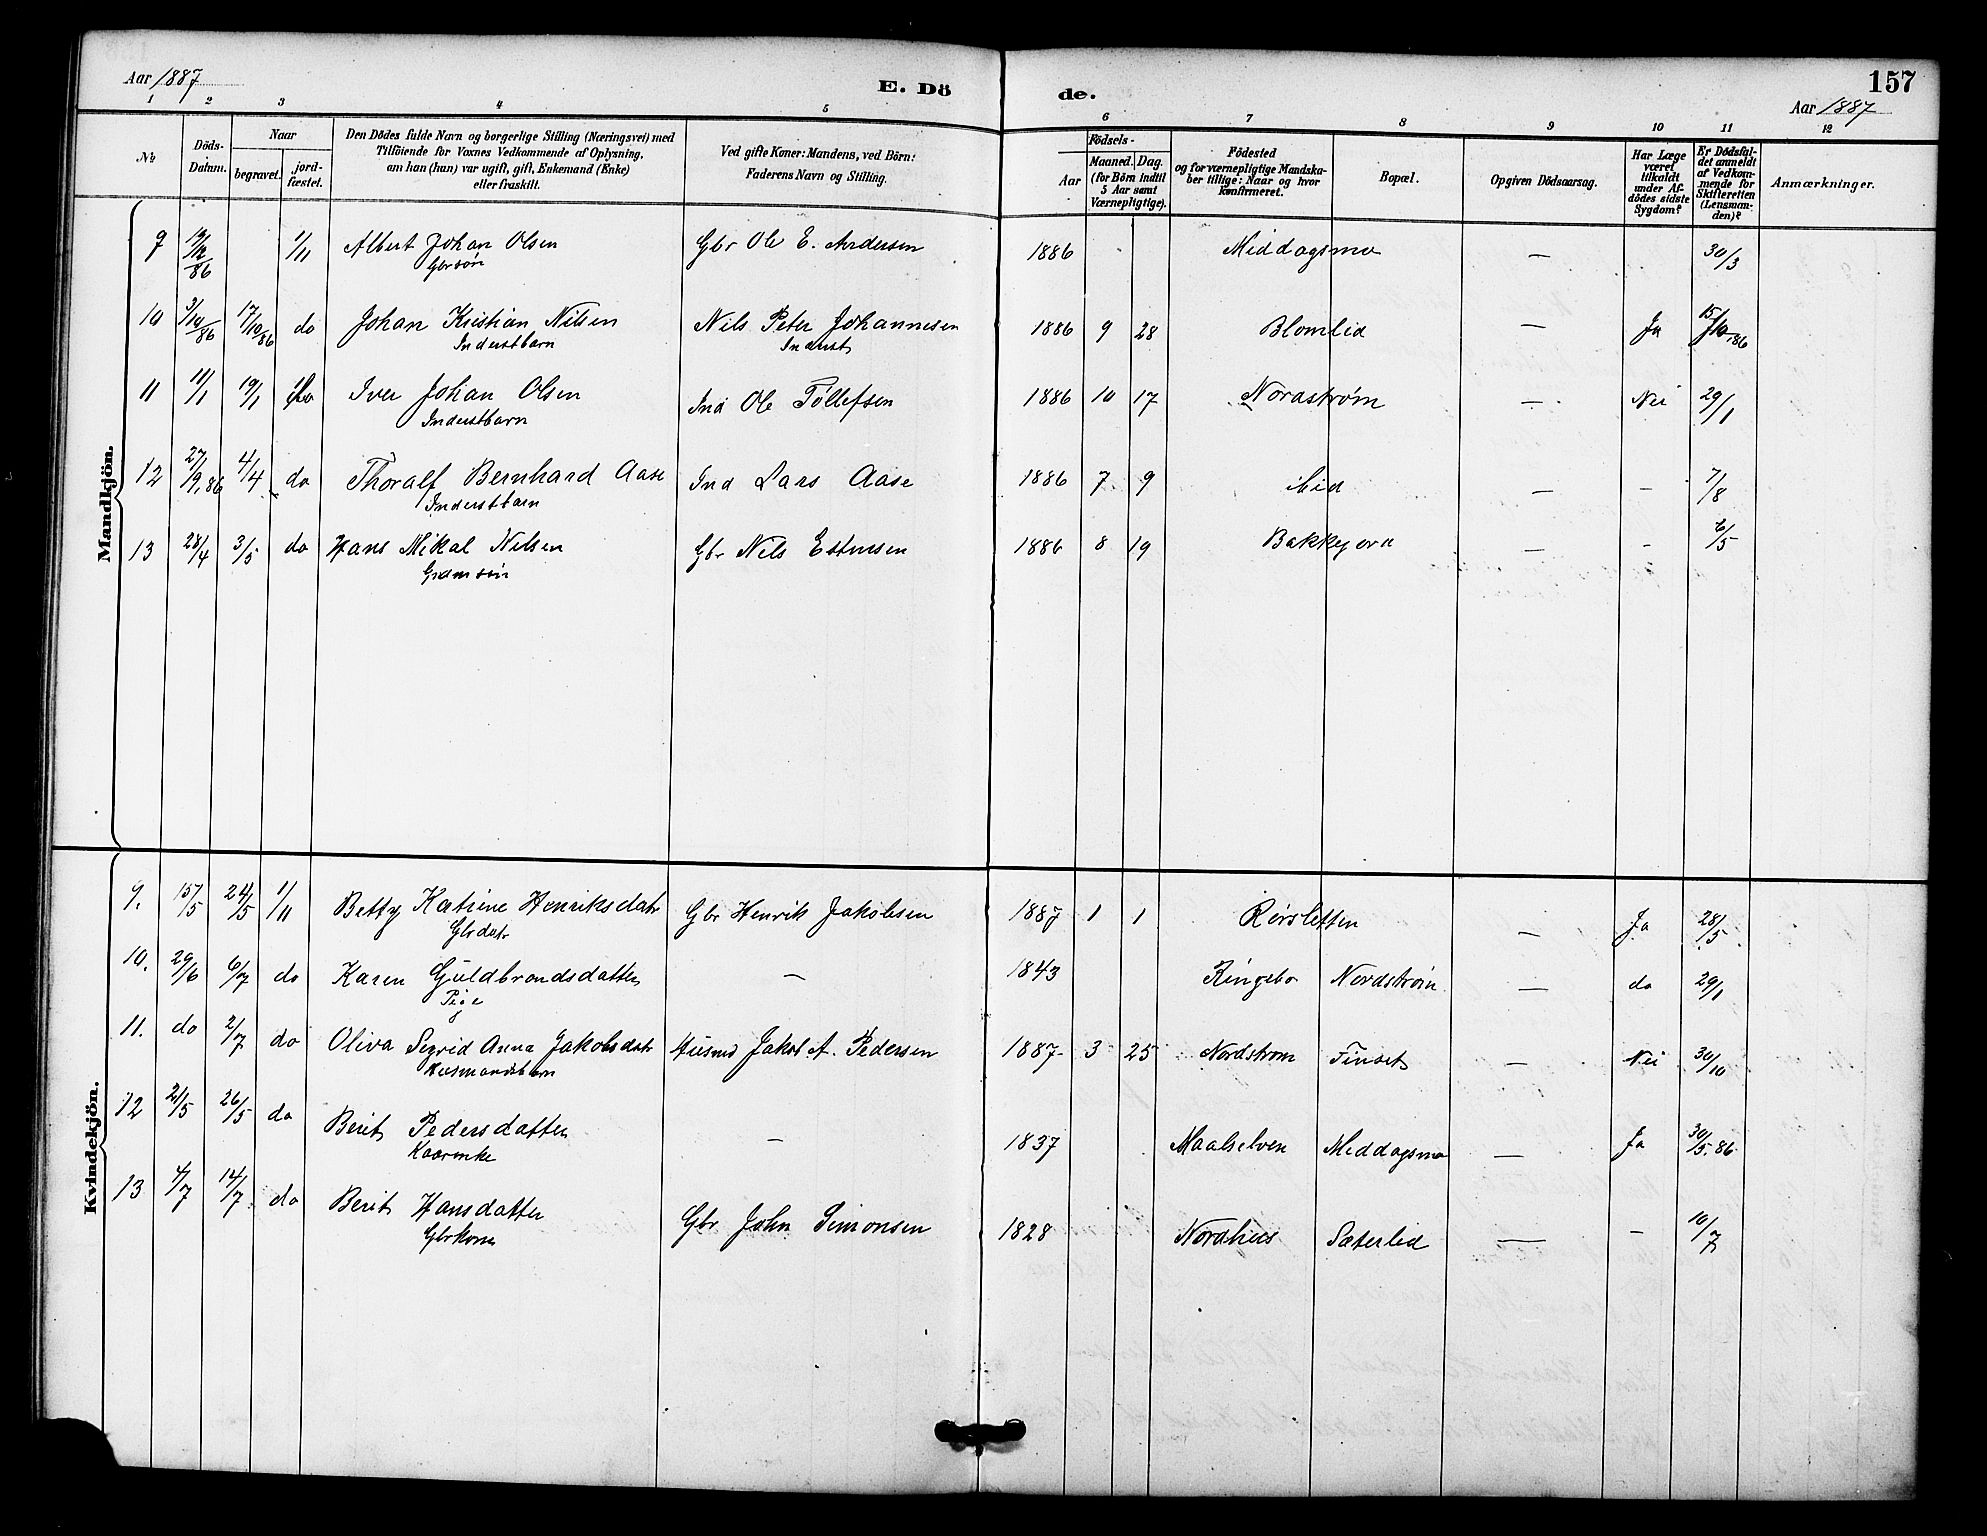 Aar 1887
E. Dö
de.
157
Aar 1887
1 2 3 4 5 6 7 8 9 10 11 12
No
Döds-
Datum.
Naar
begravet.
jord-
fæstet.
Den Dödes fulde Navn og borgerlige Stilling (Næringsvei) med
Tilföiende for Voxnes Vedkommende af Oplysning,
om han (hun) var ugift, gift, Enkemand (Enke)
eller fraskilt.
Ved gifte Koner: Mandens, ved Börn:
Faderens Navn og Stilling.
Födsels-
Aar
Maaned. Dag.
(for Börn indtil
5 Aar samt
Værnepligtige).
Födested
og for værnepligtige Mandska-
ber tillige: Naar og hvor
konfirmeret.
Bopæl.
Opgiven Dödsaarsag.
Har Læge
været
tilkaldt
under Af-
dödes sidste
Sygdom?
Er Dödsfal-
det anmeldt
af Vedkom-
mende for
Skifteretten
(Lensman-
den)?
Anmærkninger.
Mandkjön.
9 19/12 86 1/11 Albert Johan Olsen Gbr Ole E. Andersen 1886 Middagsmo — 30/3
Gbrsön
10 3/10 86 17/10 86 do Johan Kristian Nilsen Nils Peter Johannesen 1886 9 28 Blomlid — Ja 15/10 86
Inderstbarn Inderst
11 11/1 19/1 do Iver Johan Olsen Ind Ole Tollefsen 1886 10 17 Nordstrøm — Nei 29/1
Inderstbarn
12 27/9 86 4/4 do Thoralf Bernhard Aase Ind Lars Aase 1886 7 9 ibid — - 7/8
Inderstbarn
13 28/4 3/5 do Hans Mikal Nilsen Gbr Nils Estensen 1886 8 19 — - 6/5
Grdmsön
Kvindekjön.
9. 15/5 24/5 1/11 Betty Katrine Henriksdatr Gbr Henrik Jakobsen 1887 1 1 Rörsletten — Ja 28/5
Gbrdatr
10. 29/6 6/7 do Karen Guldbrandsdatter — 1843 Ringebo Nordstrøm — do 29/1
Pige
11. do 2/7 do Oliva Sigrid Anna Jakobsdatr Husmd Jakob A. Pedersen 1887 3 25 Nordstrøm Finset — Nei 30/10
Husmandsbarn
12 21/5 26/5 do Berit Pedersdatter — 1837 Maalselven Middagsmo — Ja 30/5. 86
13 4/7 14/7 do Berit Hansdatter Gbr John Simonsen 1828 Nordhus Sæterlid — — 10/7
Gbrkone